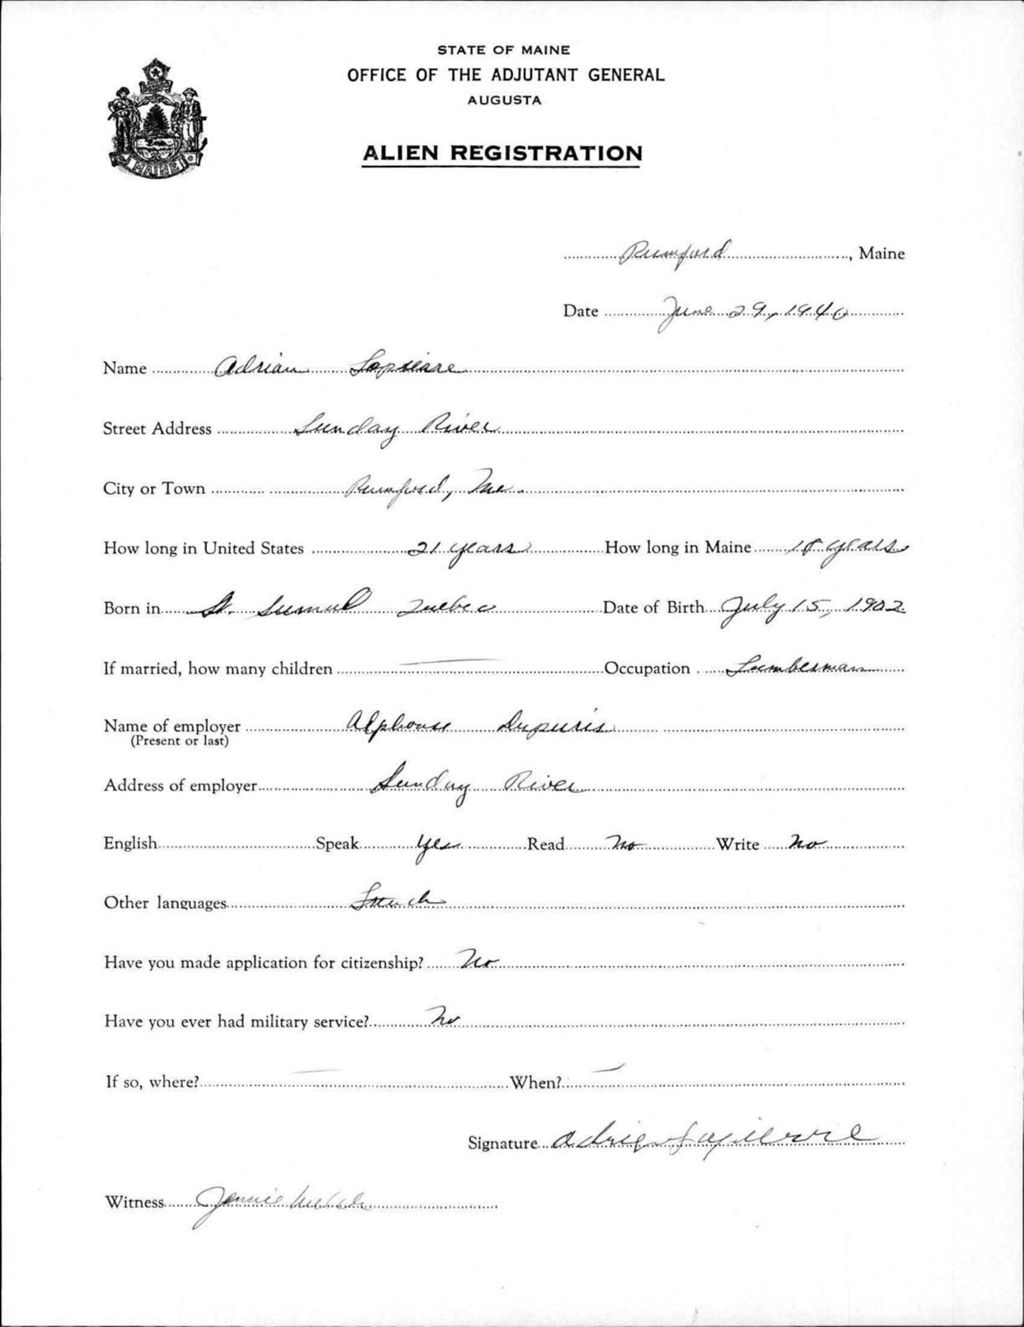 STATE OF MAINE
OFFICE OF THE ADJUTANT GENERAL
AUGUSTA
ALIEN REGISTRATION
MAINE
Rumford, Maine
Date June 29, 1940
Name Adrian Lapieare
Street Address Sunday River
City or Town Rumford, Me.
How long in United States 21 years How long in Maine 18 years
Born in St. Quebec Date of Birth July 15, 1902
If married, how many children — Occupation Lumberman
Name of employer Alphonse Dupuris
(Present or last)
Address of employer Sunday River
English Speak Yes Read No Write No
Other languages French
Have you made application for citizenship? No
Have you ever had military service? No
If so, where? — When? —
Signature Adrie Lapierre
Witness Jennie